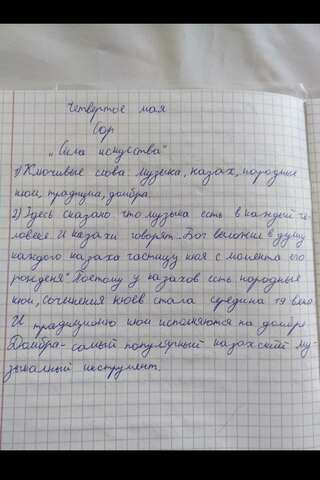 Четвертое мая
Сор
„Сила искуства"
1) Ключивые слова музыка, казах, народные
кюи, традиция, домбра.
2) Здесь сказано что музыка есть в каждом че-
ловеке. И казахи говорят „Бог вложил в душу
каждого казаха частицу кюя с момента его
рожденя". Поэтому у казахов есть народные
кюи, сочинения кюев стала средина 19 века
И традиционо кюи исполняются на домбре
Домбра-самый популярный казахский му-
зыкалный инструмент.